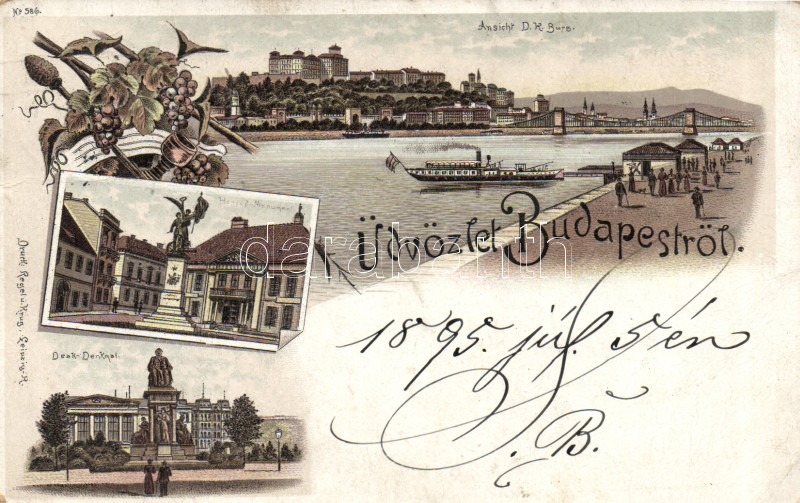 Nº 586.
Ansicht D. K. Burg.
Üdvözlet Budapestről.
darabanth
Deak-Denkmal.
Druck Regel u. Krug. Leipzig-R.
1895. júl. 5én
B.